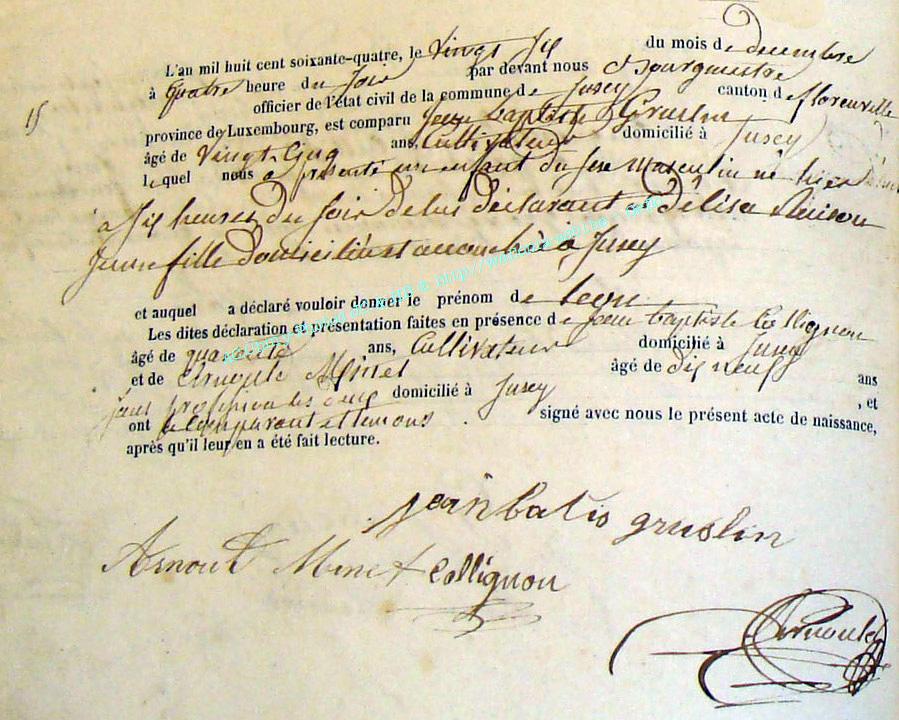 L'an mil huit cent soixante-quatre, le vingt six du mois de decembre
à quatre heure du soir par devant nous Bourguestre
officier de l'état civil de la commune de Jusey canton de florenville
15
province de Luxembourg, est comparu jean baptiste Gruslin
âgé de vingt cinq ans, Cultivateur domicilié à Jusey
lequel nous a présenté un enfant du sexe masculin né hier
à six heures du soir de lui déclarant et d'élisa
jeune fille domiciliée et accouchée à Jusey
et auquel a déclaré vouloir donner le prénom de leon
Les dites déclaration et présentation faites en présence de jean baptiste Collignon
âgé de quarante ans, Cultivateur domicilié à Jusey
et de Arnould Minet âgé de dix neuf ans
sans profession domicilié à Jusey , et
ont le comparant et temoins signé avec nous le présent acte de naissance,
après qu'il leur en a été fait lecture.
jean batis gruslin
Arnould Minet Collignon
Arnould